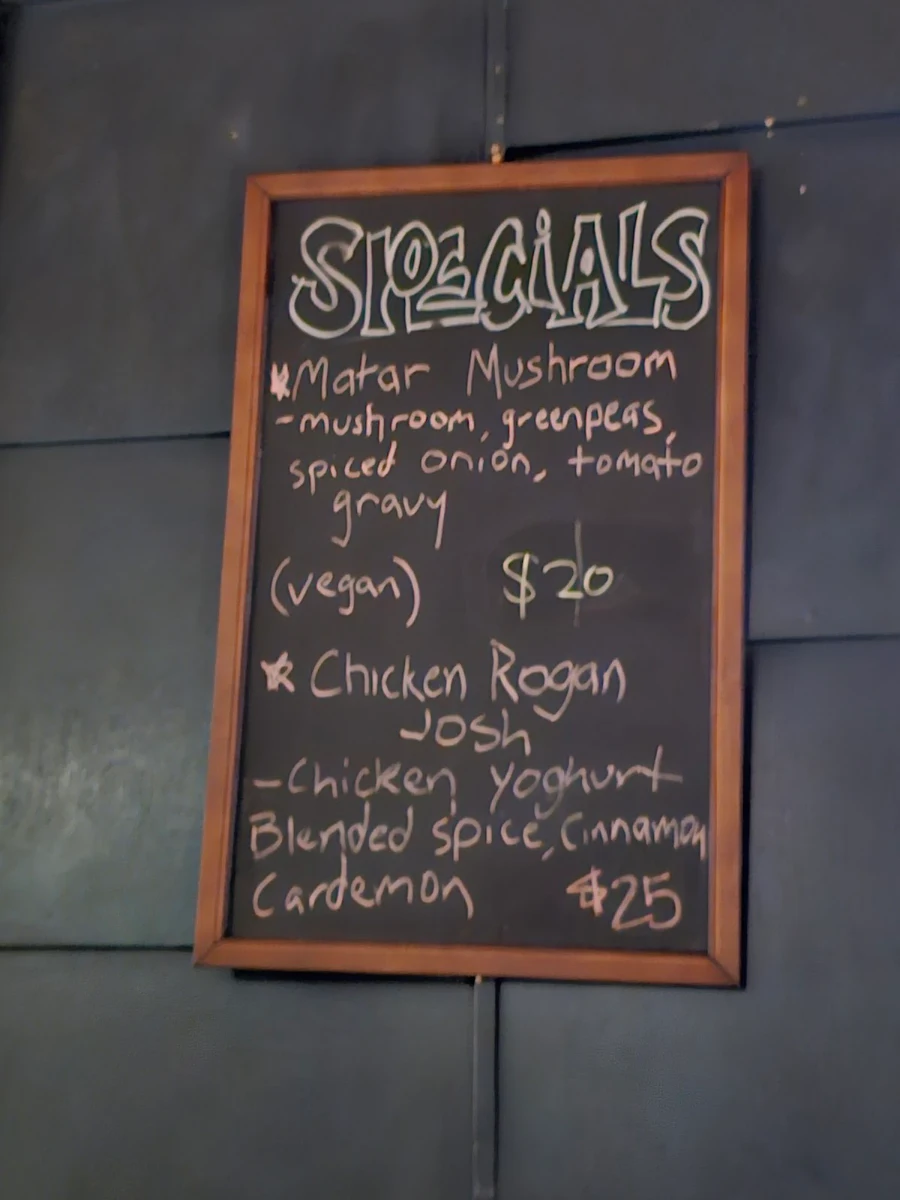 SPECiALS
*Matar Mushroom
-mushroom, greenpeas,
spiced onion, tomato
gravy
(vegan) $20
* Chicken Rogan
Josh
-Chicken, yoghurt
Blended spice, Cinnamon
Cardemon $25